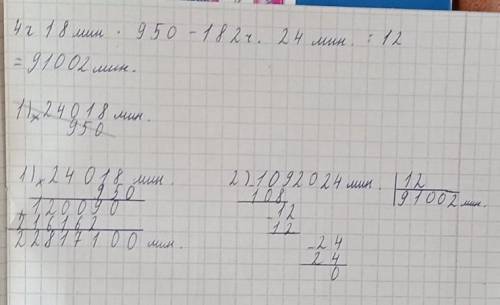 4ч 18мин · 950 - 182ч. 24 мин. : 12
= 91002 мин.
1) × 24018 мин.
950
1) × 24018 мин.
950
120090
216162
22817100 мин.
2) - 1092024 мин. | 12
108 91002 мин.
- 12
12
- 24
24
0